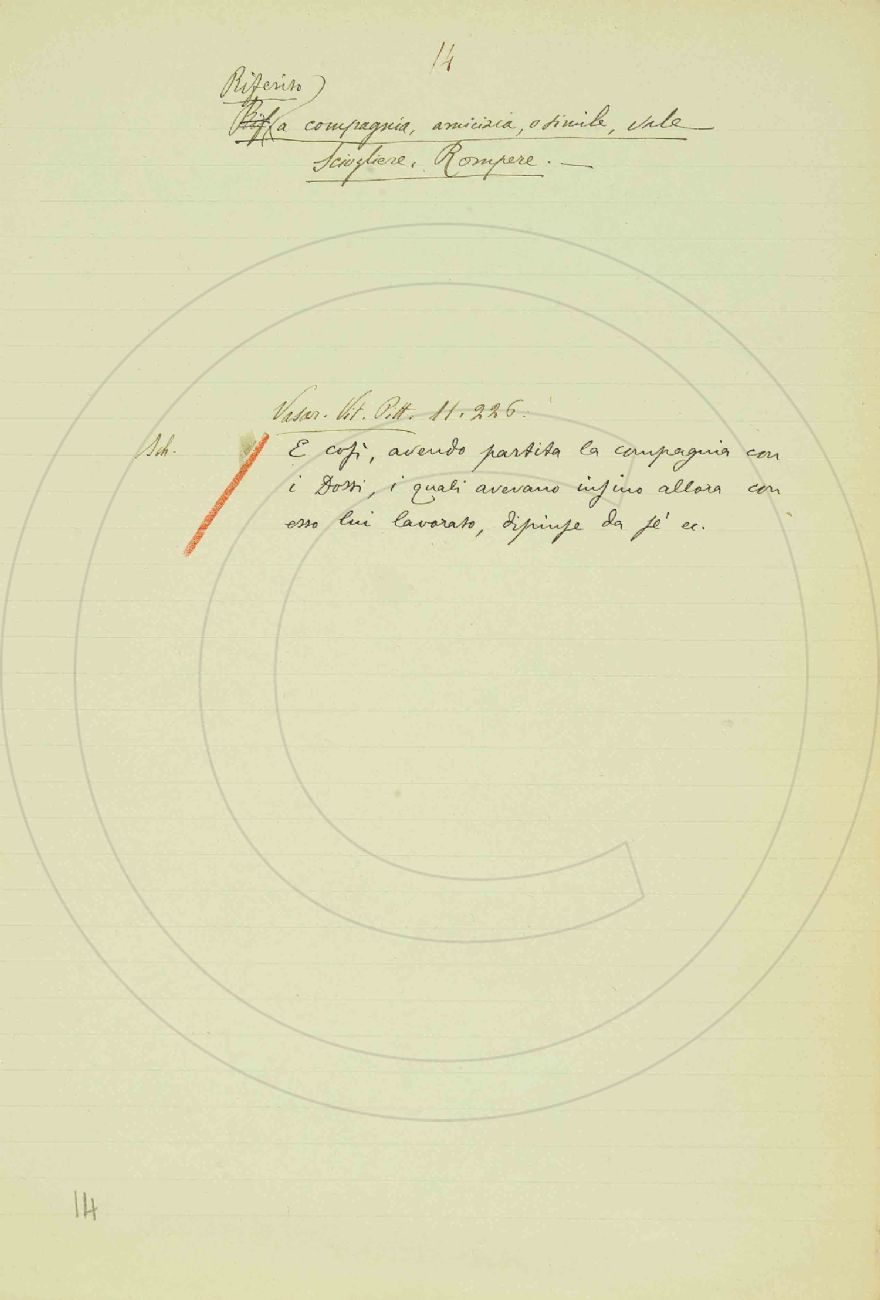 14
Riferito
a compagnia, amicizia, o simile, vale
Sciogliere, Rompere. —
Vasar. Vit. Pitt. 11. 226:
Sch.
E coſì, avendo partita la compagnia con
i Dossi, i quali avevano inſino allora con
esso lui lavorato, dipinſe da ſé ec.
14